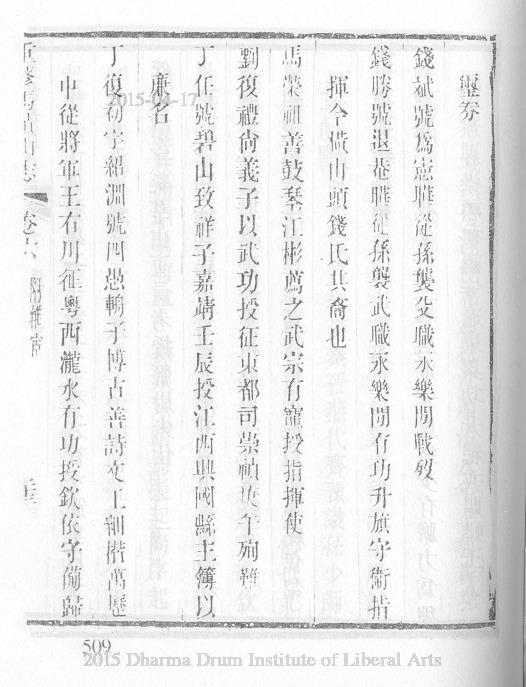 璽券
錢斌號爲憲驊從孫襲父職永樂閒戰歿
錢勝號退菴驊從孫襲武職永樂閒有功升旗守衞指
揮今橫山頭錢氏其裔也
馬榮祖善鼓琴江彬薦之武宗有寵授指揮使
劉復禮尙義子以武功授征東都司崇禎庚午殉難
丁任號碧山致祥子嘉靖壬辰授江西興國縣主簿以
廉名
丁復初字紹淵號四愚鶴子博古善詩文工細楷萬歷
中從將軍王右川征粤西瀧水有功授欽依守備歸
卷六
509
2015-04-17
2015 Dharma Drum Institute of Liberal Arts